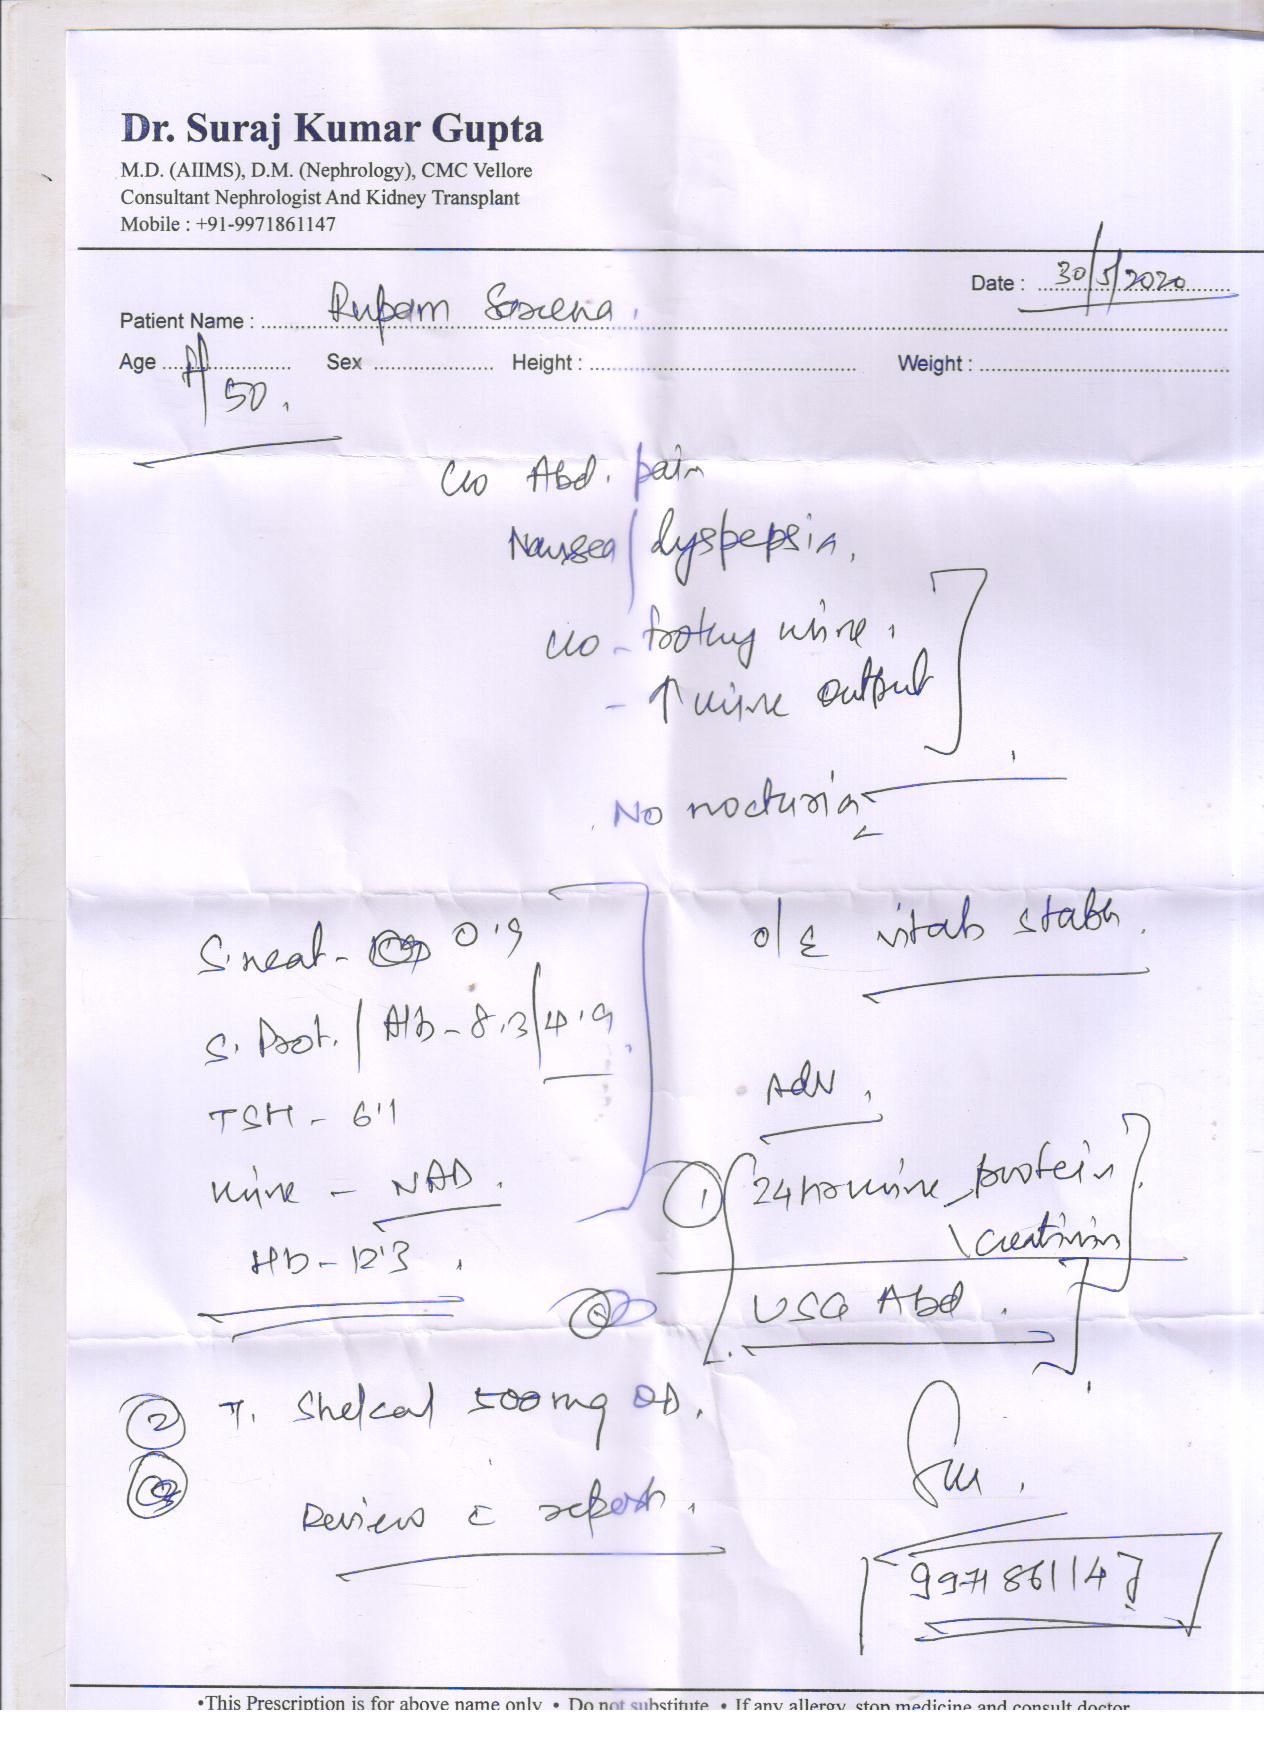 Dr. Suraj Kumar Gupta
M.D. (AIIMS), D.M. (Nephrology), CMC Vellore
Consultant Nephrologist And Kidney Transplant
Mobile : +91-9971861147
Date : 30/5/2020
Patient Name : Rupam Saxena
Age Sex Height : Weight :
50
c/o Abd. pain
Nausea/dyspepsia
c/o - frothy urine
- ↑ urine output
No nocturia
S. creat - 0.9
S. Prot. / Alb - 8.3/4.9
TSH - 6.1
urine - NAD
Hb - 12.3
o/E vitals stable
Adv
1 24 hr urine protein
\ creatinin
USG Abd
2 T. Shelcal 500mg OD
Review c report
9971861147
•This Prescription is for above name only • Do not substitute • If any allergy, stop medicine and consult doctor